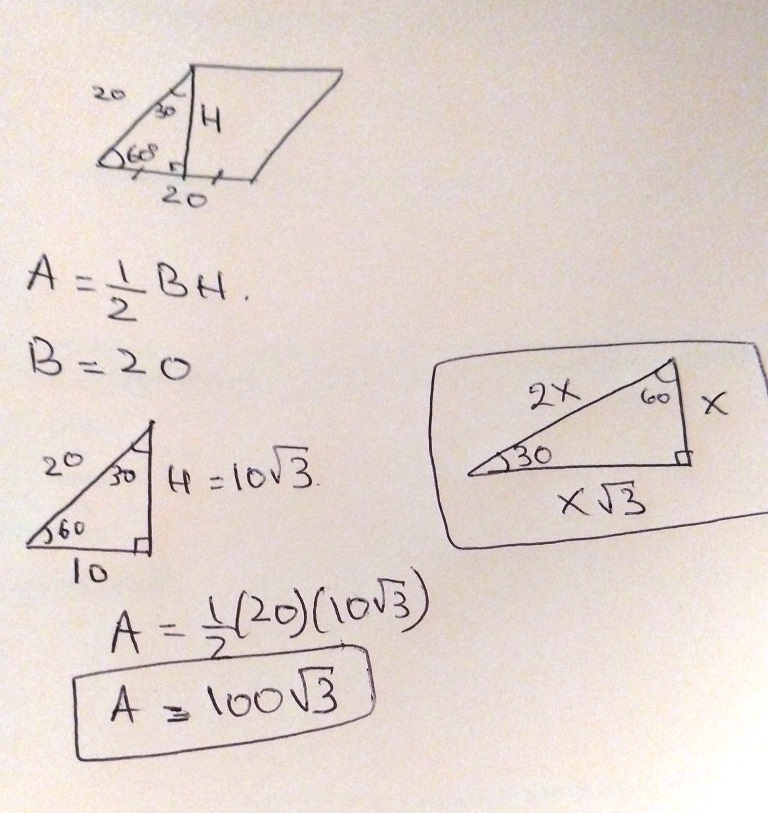 20
30
H
60°
20
A = 1/2 BH.
B = 20
2x
60
x
30
x√3
20
30
H = 10√3.
60
10
A = 1/2 (20)(10√3)
A = 100√3